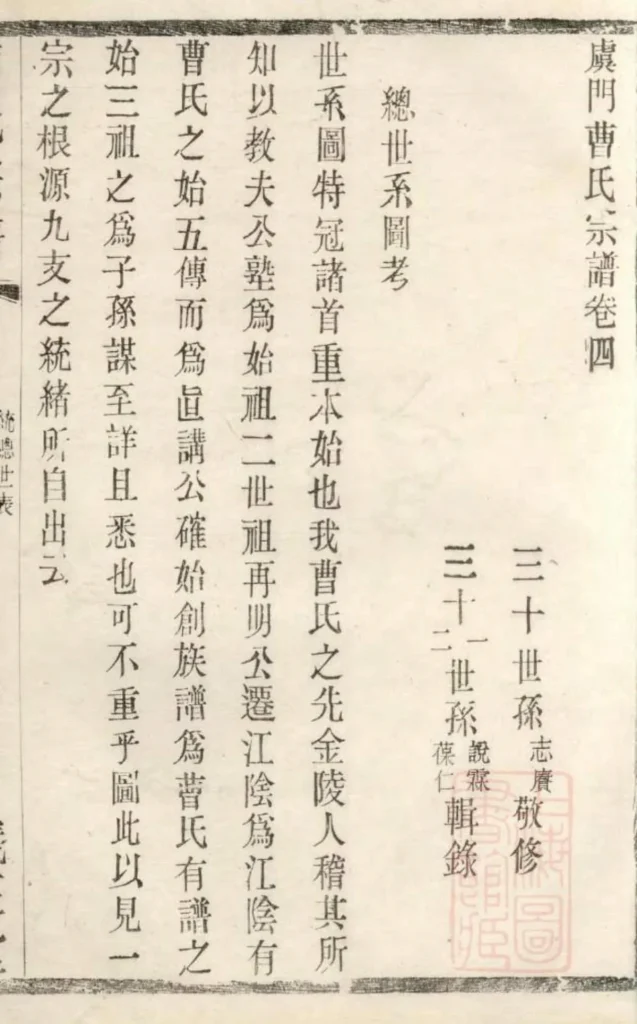 虞門曹氏宗譜卷四
三十世孫志賡敬修
三十一二世孫說霖葆仁輯錄
總世系圖考
世系圖特冠諸首重本始也我曹氏之先金陵人稽其所
知以教夫公塾爲始祖二世祖再明公遷江陰爲江陰有
曹氏之始五傳而爲眞講公確始創族譜爲曹氏有譜之
始三祖之爲子孫謀至詳且悉也可不重乎圖此以見一
宗之根源九支之統緒所自出云
統總世表